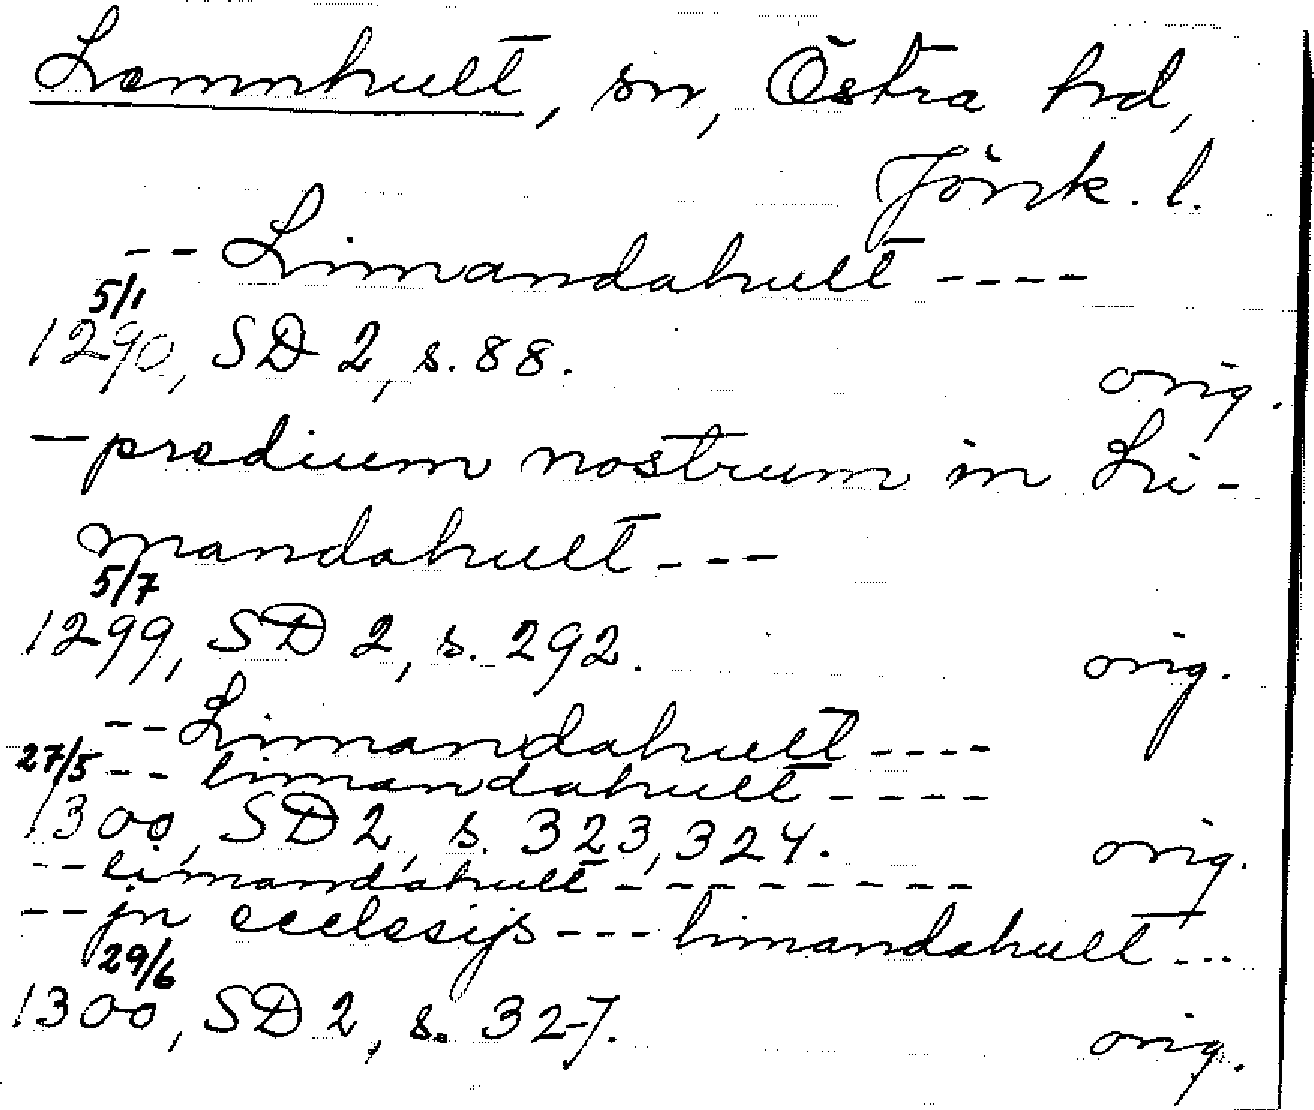 Lamnhult, sn, Östra hd,
Jönk. l.
-- Limandahult ----
5/1
1290, SD 2, s. 88. orig.
- predium nostrum in Li-
mandahult ---
5/7
1299, SD 2, s. 292. orig.
-- Limandahult ----
27/5 -- limandahult ----
1300, SD 2, s. 323, 324. orig.
-- limandahult --------
-- jn ecclesijs --- limandahult ...
29/6
1300, SD 2, s. 327. orig.